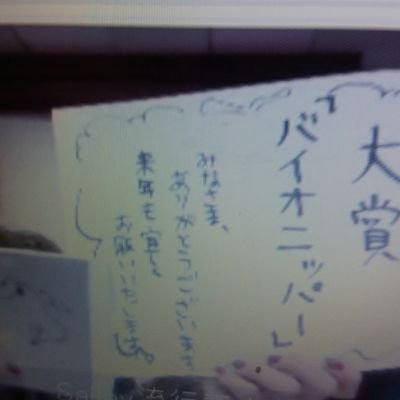 大賞
「バイオニッパー」
みなさま、
ありがとうございます
来年も宜しく
お願いいたします。